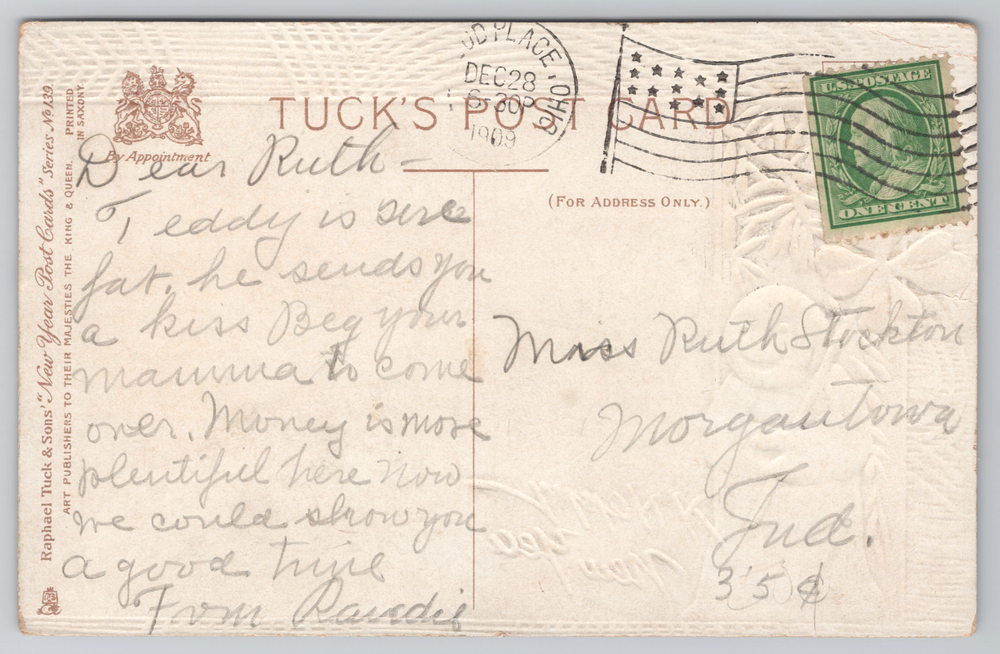 Raphael Tuck & Sons' "New Year Post Cards" Series No 139.
ART PUBLISHERS TO THEIR MAJESTIES THE KING & QUEEN.
PRINTED
IN SAXONY
By Appointment
TUCK'S POST CARD
(FOR ADDRESS ONLY.)
PLACE, OHIO
DEC 28
30P
1909
U.S. POSTAGE
ONE CENT
Dear Ruth –
Teddy is
fat. he sends you
a kiss Beg your
mamma to come
over. Money is more
plentiful here now
we could show you
a good time
From
Miss Ruth Stockton
Morgantown
Ind.
35¢